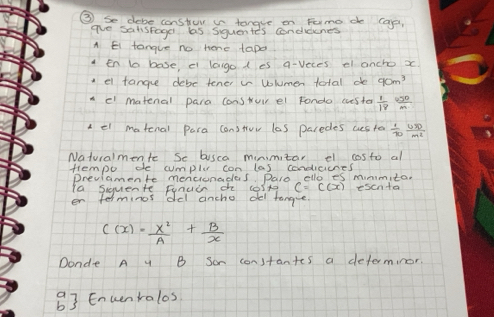 ③ Se debe construir un tanque en Forma de caja,
que satisfaga las siguientes condiciones
• El tanque no tiene tapa
• En la base, el largo l es a-veces el ancho x
• el tanque debe tener un volumen total de 90m³
• el material para construir el Fondo cuesta 1/18 USD/m
• el material Para construir las paredes cuesta USD/m²
Naturalmente se busca minimizar el costo al
tiempo de cumplir con las condiciones
previamente mencionadas. Para ello es minimizar
la siguiente Función de costo C = C(x) escrita
en terminos del ancho del tanque.
C(x) = X²/A + B/x
Donde A y B son constantes a determinar.
a} Encuentralos
b}